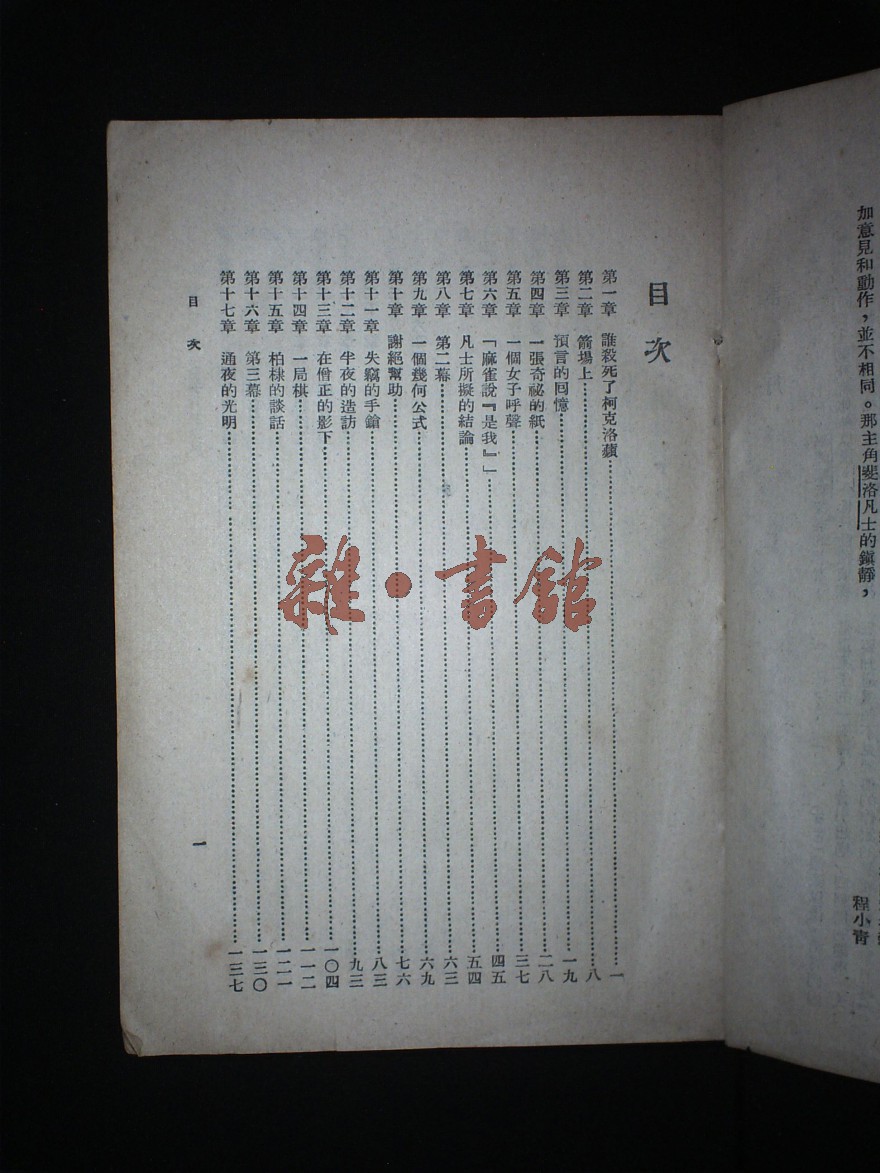 加意見和動作，並不相同。那主角斐洛凡士的鎮靜，
程小青
目次
第一章　誰殺死了柯克洛蘋……一
第二章　箭場上……八
第三章　預言的回憶……一九
第四章　一張奇祕的紙……二八
第五章　一個女子呼聲……三七
第六章　「麻雀說『是我』」……四五
第七章　凡士所擬的結論……五四
第八章　第二幕……六三
第九章　一個幾何公式……六九
第十章　謝絕幫助……七六
第十一章　失竊的手鎗……八三
第十二章　半夜的造訪……九三
第十三章　在僧正的影下……一〇四
第十四章　一局棋……一一二
第十五章　柏棣的談話……一二一
第十六章　第三幕……一三〇
第十七章　通夜的光明……一三七
目次
一
雜·書館